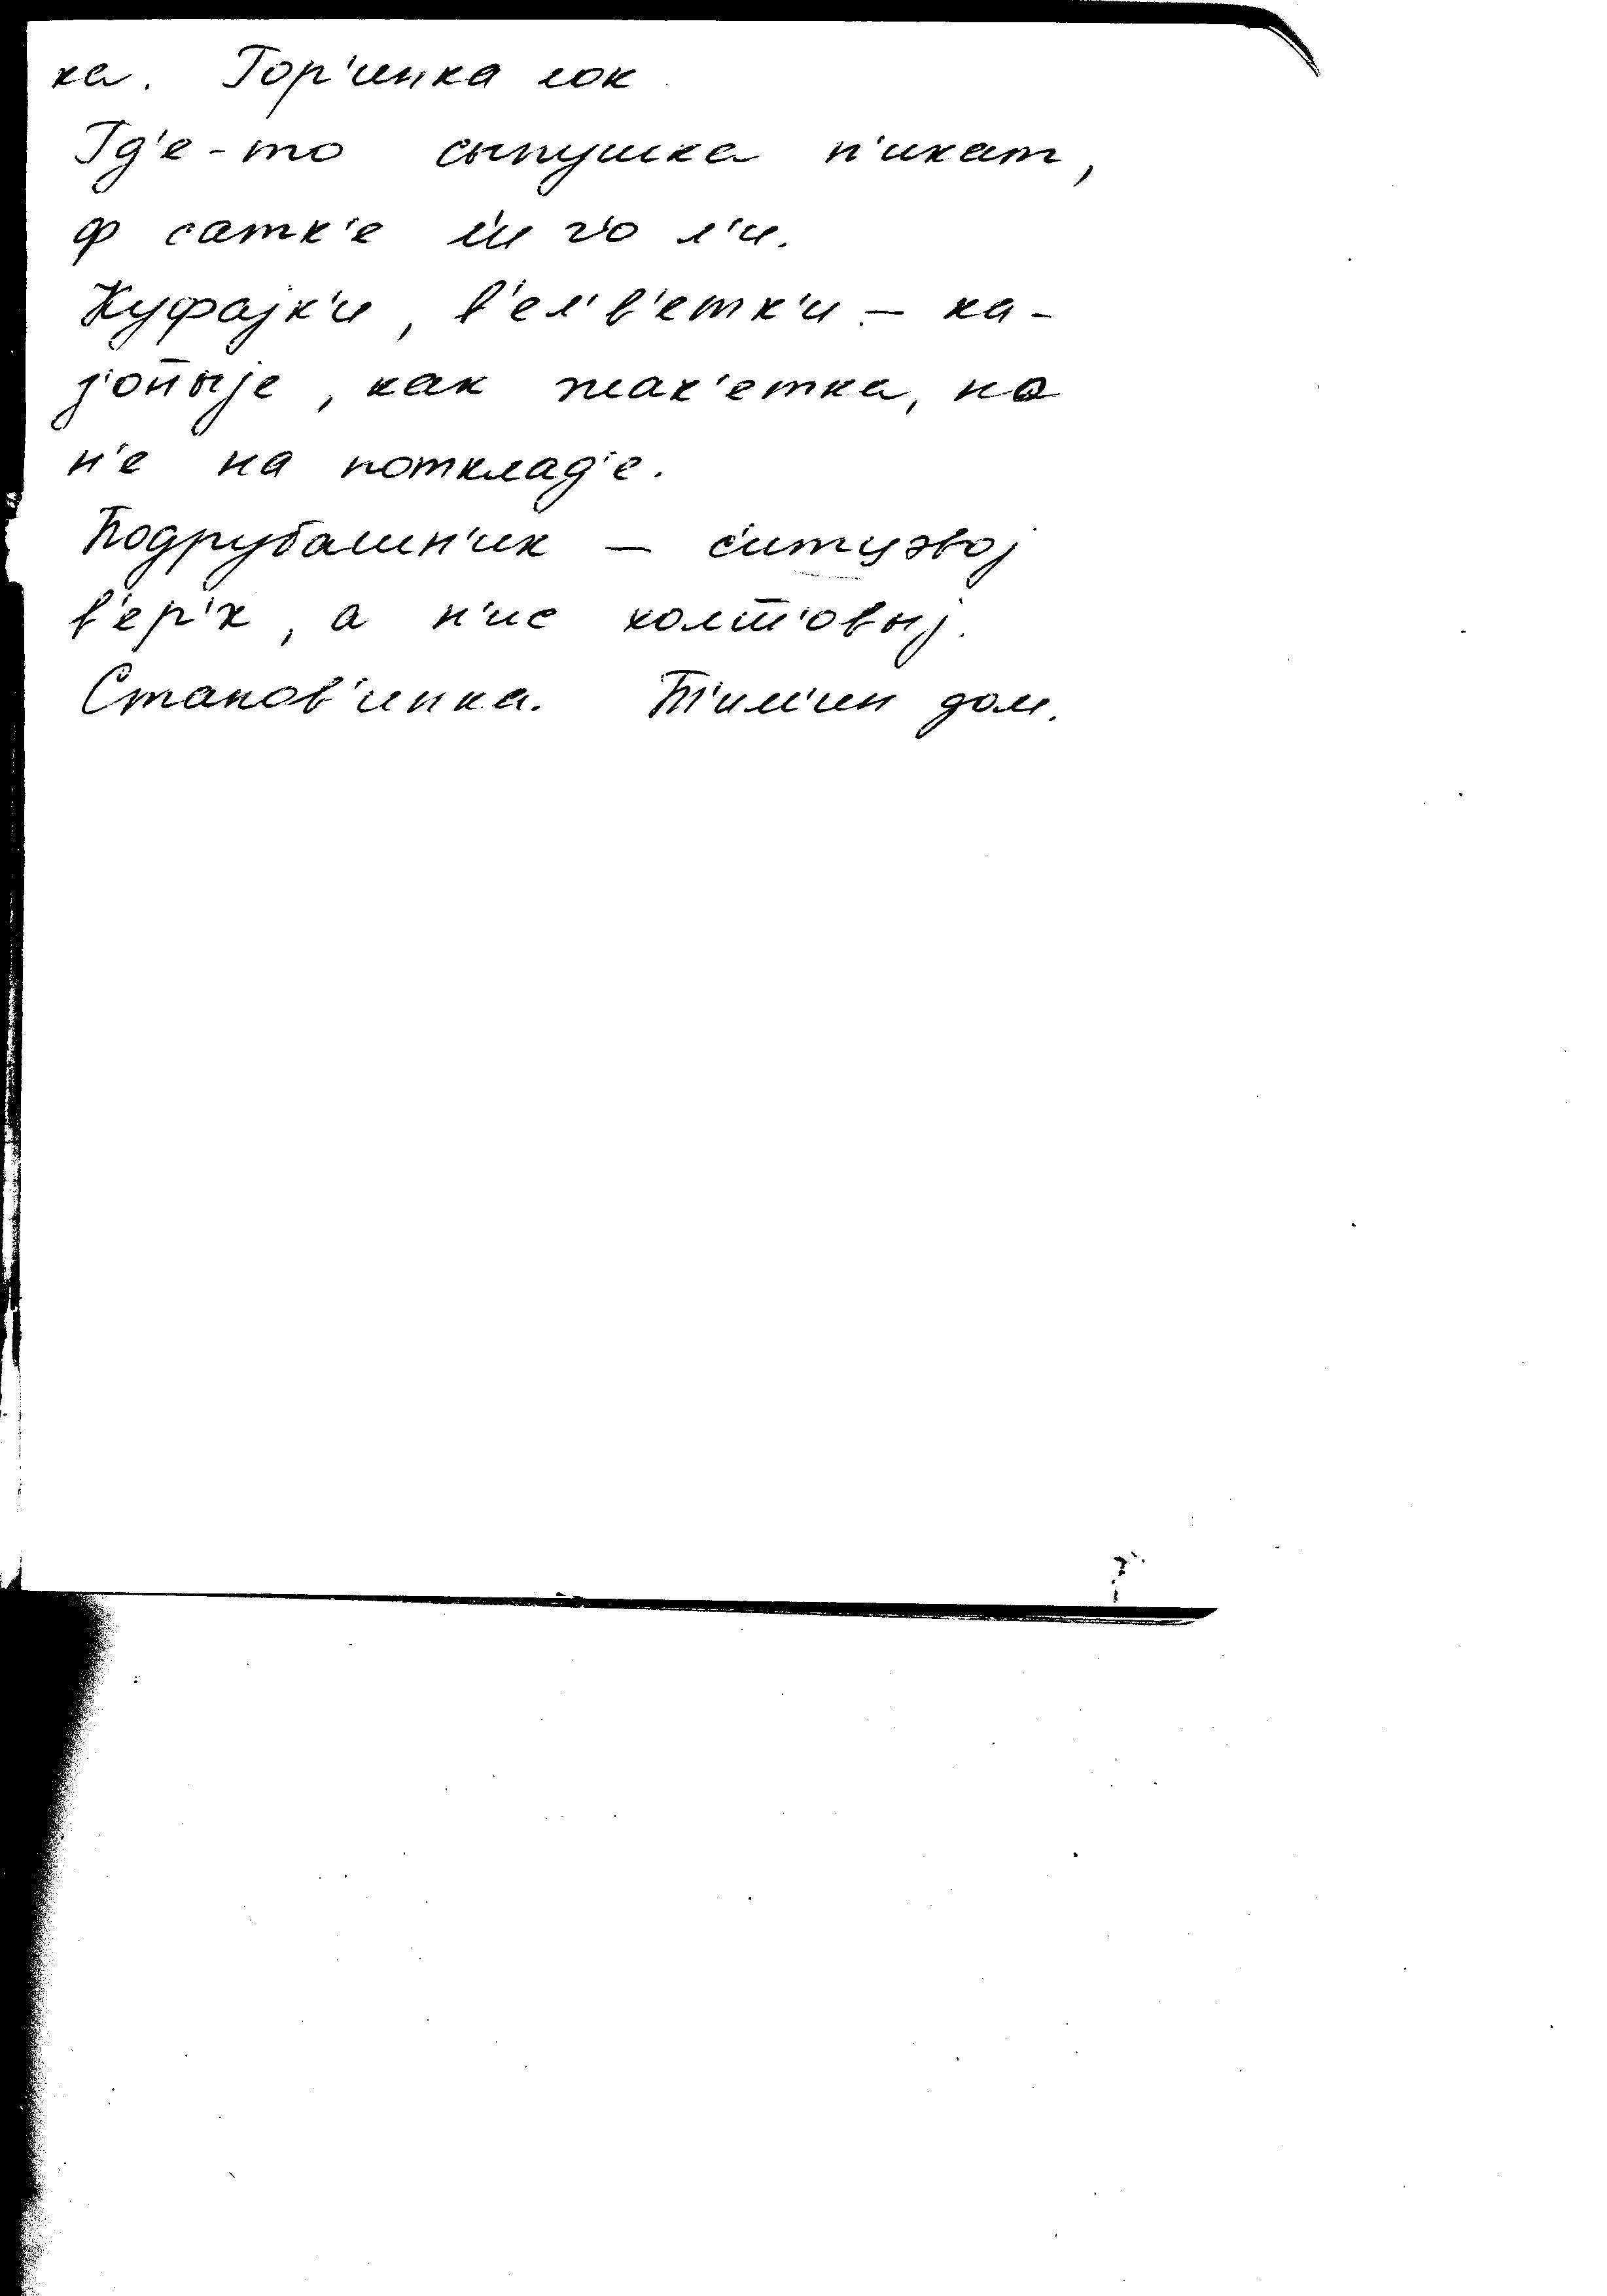 ка. Гор'инка лок
Гд'е-то сыпушка п'икат,
ф сатк'е л'и г'о л'и.
Куфајк'и, в'ел'в'етк'и - ка-
как жак'етка, но
н'е на поткладе.
Подрубашн'ик - с'итцэвој
в'ер'х, а н'ис холшовыј.
Станов'инка. дом.